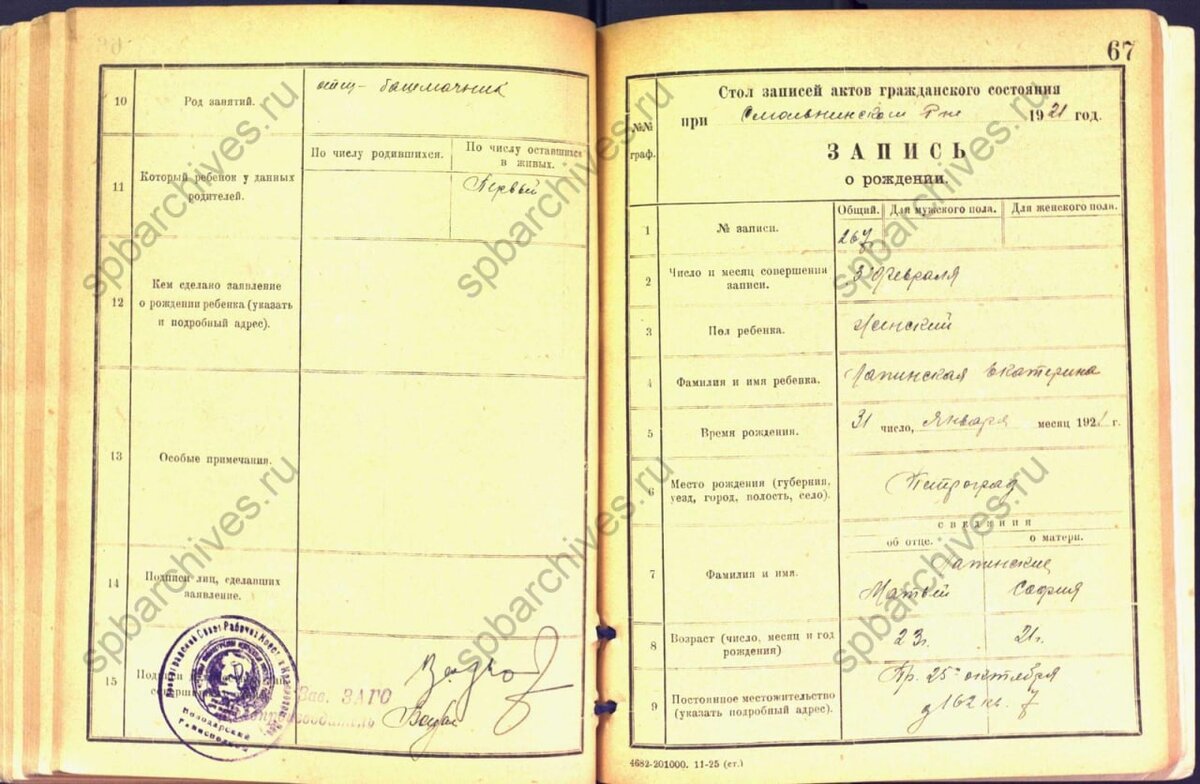 10
Род занятий.
отец - башмачник
11
Который ребенок у данных
родителей.
По числу родившихся.
По числу оставшихся
в живых.
Первый
12
Кем сделано заявление
о рождении ребенка (указать
и подробный адрес).
13
Особые примечания.
14
Подписи лиц, сделавших
заявление.
15
Зав. ЗАГС
67
Стол записей актов гражданского состояния
при Смольнинском Р-не 1921 год.
№№
граф.
ЗАПИСЬ
о рождении.
1
№ записи.
Общий. Для мужского пола. Для женского пола.
267
2
Число и месяц совершения
записи.
3 февраля
3
Пол ребенка.
Женский
4
Фамилия и имя ребенка.
Лапинская Екатерина
5
Время рождения.
31 число, Января месяц 1921 г.
6
Место рождения (губерния,
уезд, город, волость, село).
Петроград
сведения
об отце. о матери.
7
Фамилия и имя.
Лапинские
Матвей София
8
Возраст (число, месяц и год
рождения)
23 г. 21 г.
9
Постоянное местожительство
(указать подробный адрес).
Пр. 25го октября
д 162 кв. 7
4682-201000. 11-25 (ст.)
spbarchives.ru
spbarchives.ru
spbarchives.ru
spbarchives.ru
spbarchives.ru
spbarchives.ru
spbarchives.ru
spbarchives.ru